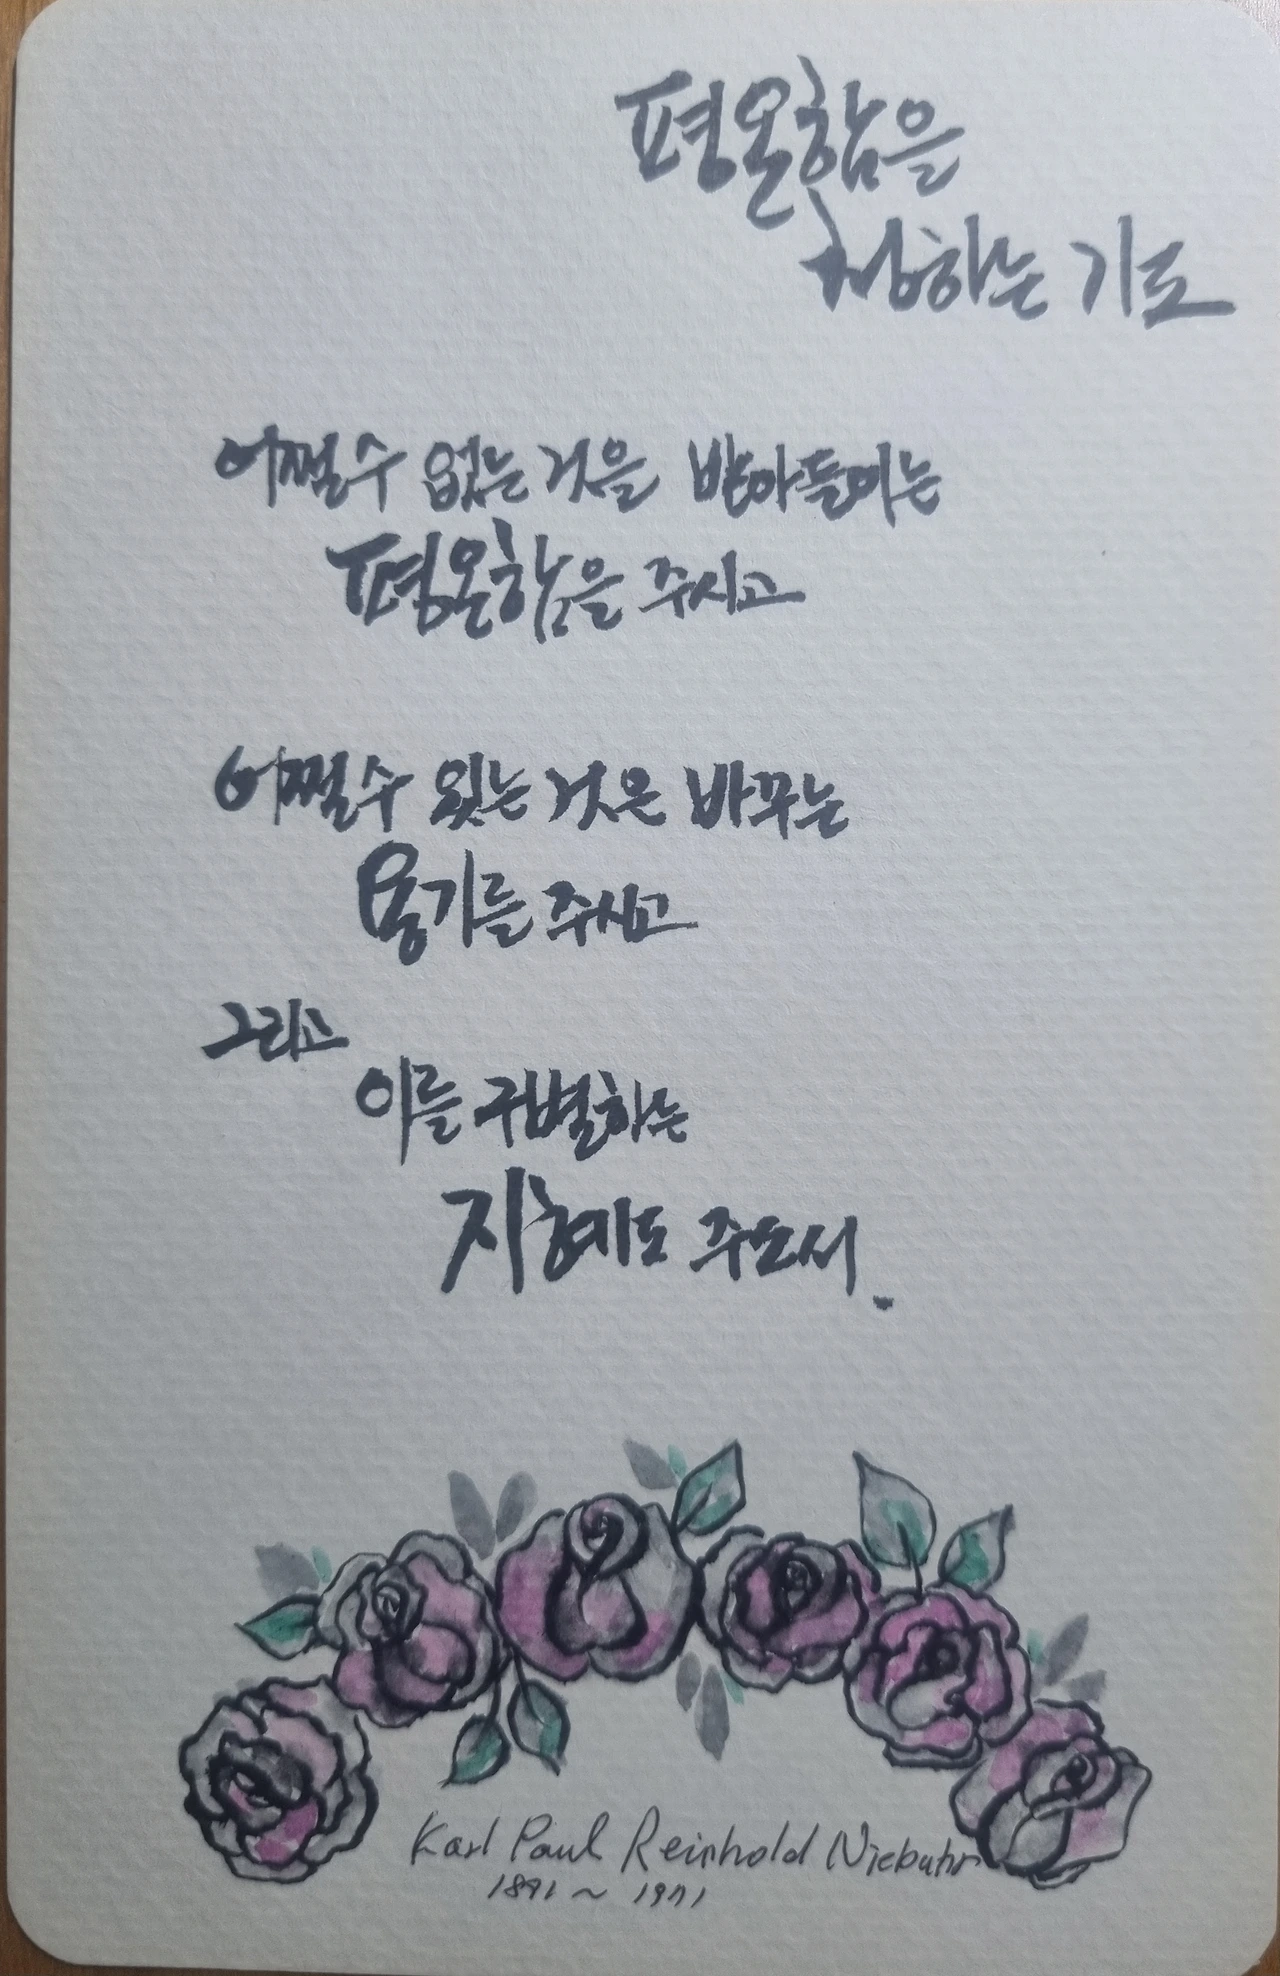 평온함을
청하는 기도
어쩔수 없는 것을 받아들이는
평온함을 주시고
어쩔수 있는 것은 바꾸는
용기를 주시고
그리고
이를 구별하는
지혜도 주소서.
Karl Paul Reinhold Niebuhr
1891 ~ 1971